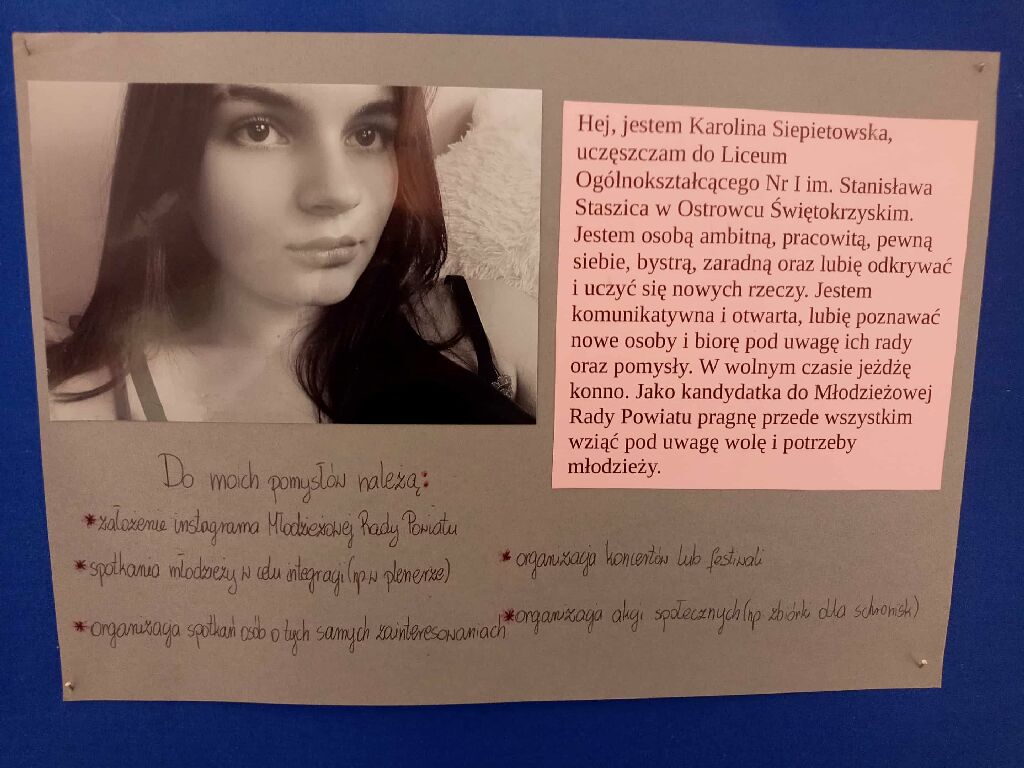 Hej, jestem Karolina Siepietowska,
uczęszczam do Liceum
Ogólnokształcącego Nr I im. Stanisława
Staszica w Ostrowcu Świętokrzyskim.
Jestem osobą ambitną, pracowitą, pewną
siebie, bystrą, zaradną oraz lubię odkrywać
i uczyć się nowych rzeczy. Jestem
komunikatywna i otwarta, lubię poznawać
nowe osoby i biorę pod uwagę ich rady
oraz pomysły. W wolnym czasie jeżdżę
konno. Jako kandydatka do Młodzieżowej
Rady Powiatu pragnę przede wszystkim
wziąć pod uwagę wolę i potrzeby
młodzieży.
Do moich pomysłów należą:
*założenie instagrama Młodzieżowej Rady Powiatu
*spotkania młodzieży w celu integracji (np w plenerze)
*organizacja spotkań osób o tych samych zainteresowaniach
*organizacja koncertów lub festiwali
*organizacja akcji społecznych (np. zbiórki dla schronisk)